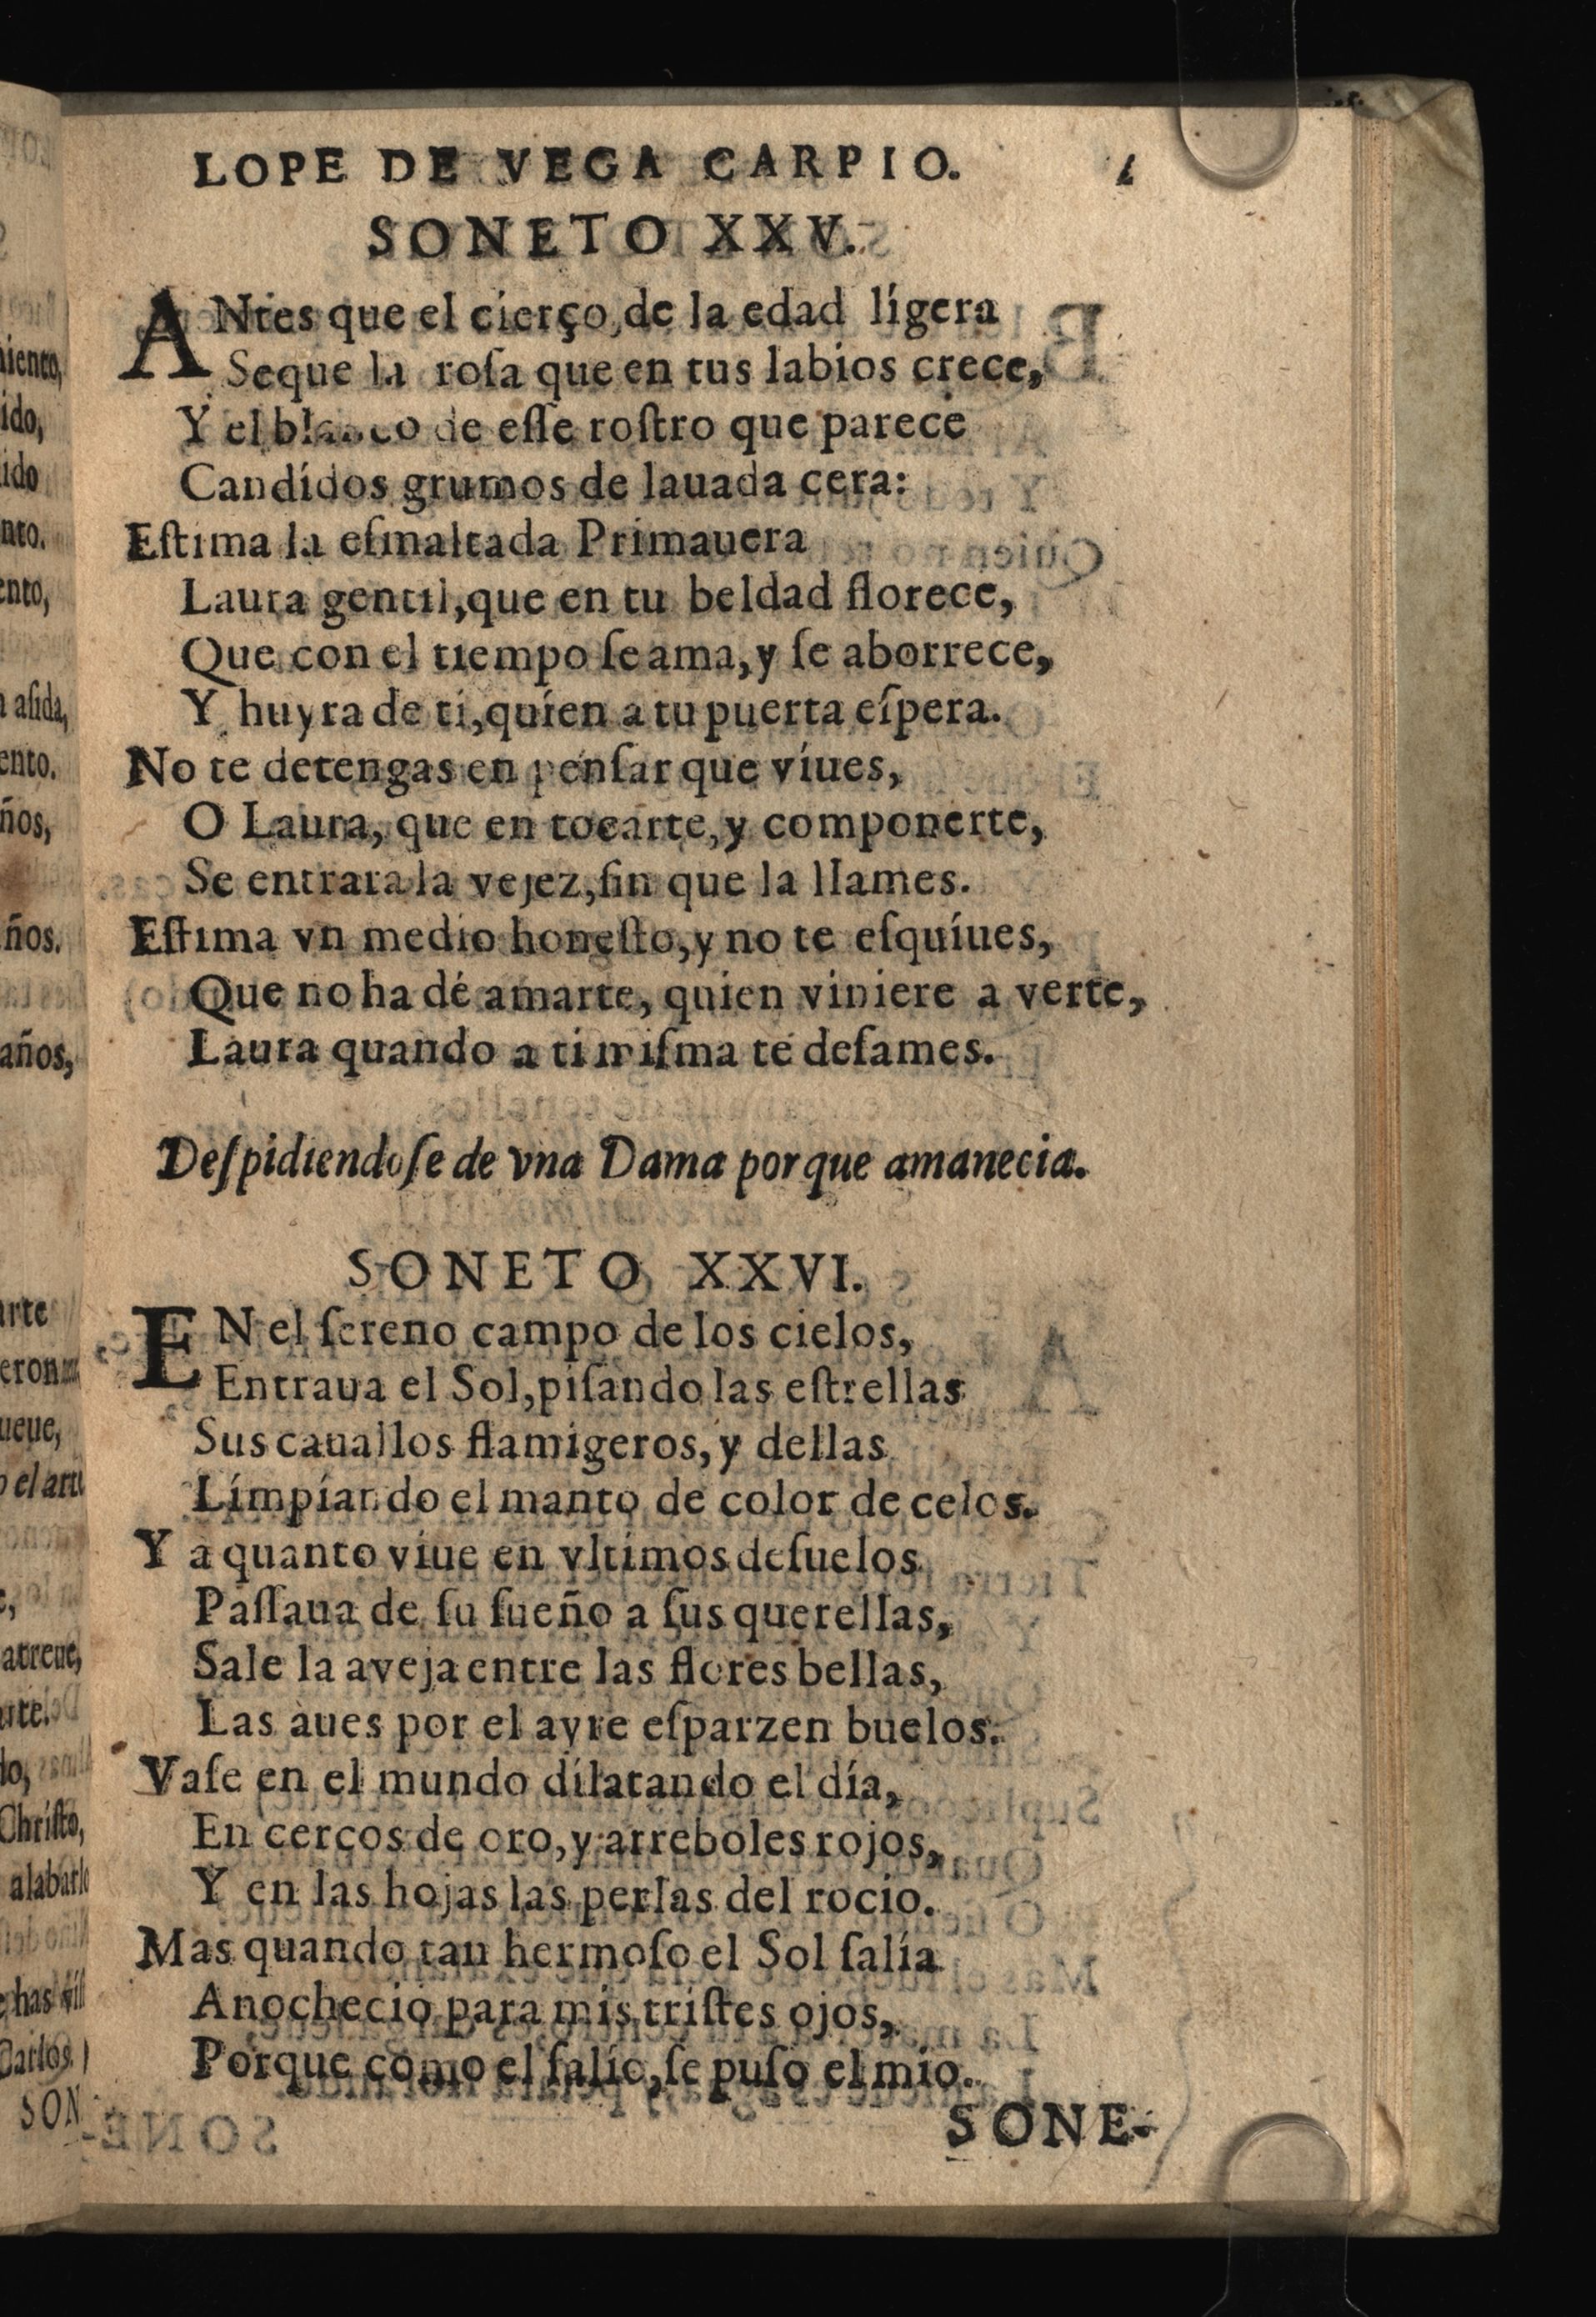 LOPE DE VEGA CARPIO.
SONETO XXV.
ANtes que el cierço, de la edad lígera
Seque la roſa que en tus labios crece,
Y el blanco de eſſe roſtro que parece
Candídos grumos de lauada cera:
Eſtima la eſmaltada Primauera
Laura gentil, que en tu beldad florece,
Que con el tiempo ſe ama, y ſe aborrece,
Y huyra de ti, quíen a tu puerta eſpera.
No te detengas en penſar que víues,
O Laura, que en tocarte, y componerte,
Se entrara la vejez, ſin que la llames.
Eſtima vn medio honeſto, y no te eſquíues,
Que no ha dé amarte, quien viniere a verte,
Laura quando a ti miſma te deſames.
Deſpidiendoſe de vna Dama porque amanecia.
SONETO XXVI.
EN el ſereno campo de los cielos,
Entraua el Sol, piſando las eſtrellas
Sus cauallos flamigeros, y dellas
Límpíando el manto de color de celos.
Y a quanto viue en vltimos deſuelos
Paſſaua de ſu ſueño a ſus querellas,
Sale la aveja entre las flores bellas,
Las aues por el ayre eſparzen buelos.
Vaſe en el mundo dílatando el día,
En cercos de oro, y arreboles rojos,
Y en las hojas las perlas del rocio.
Mas quando tan hermoſo el Sol ſalía
Anochecio para mis triſtes ojos,
Porque como el ſalío, ſe puſo el mio.
SONE-